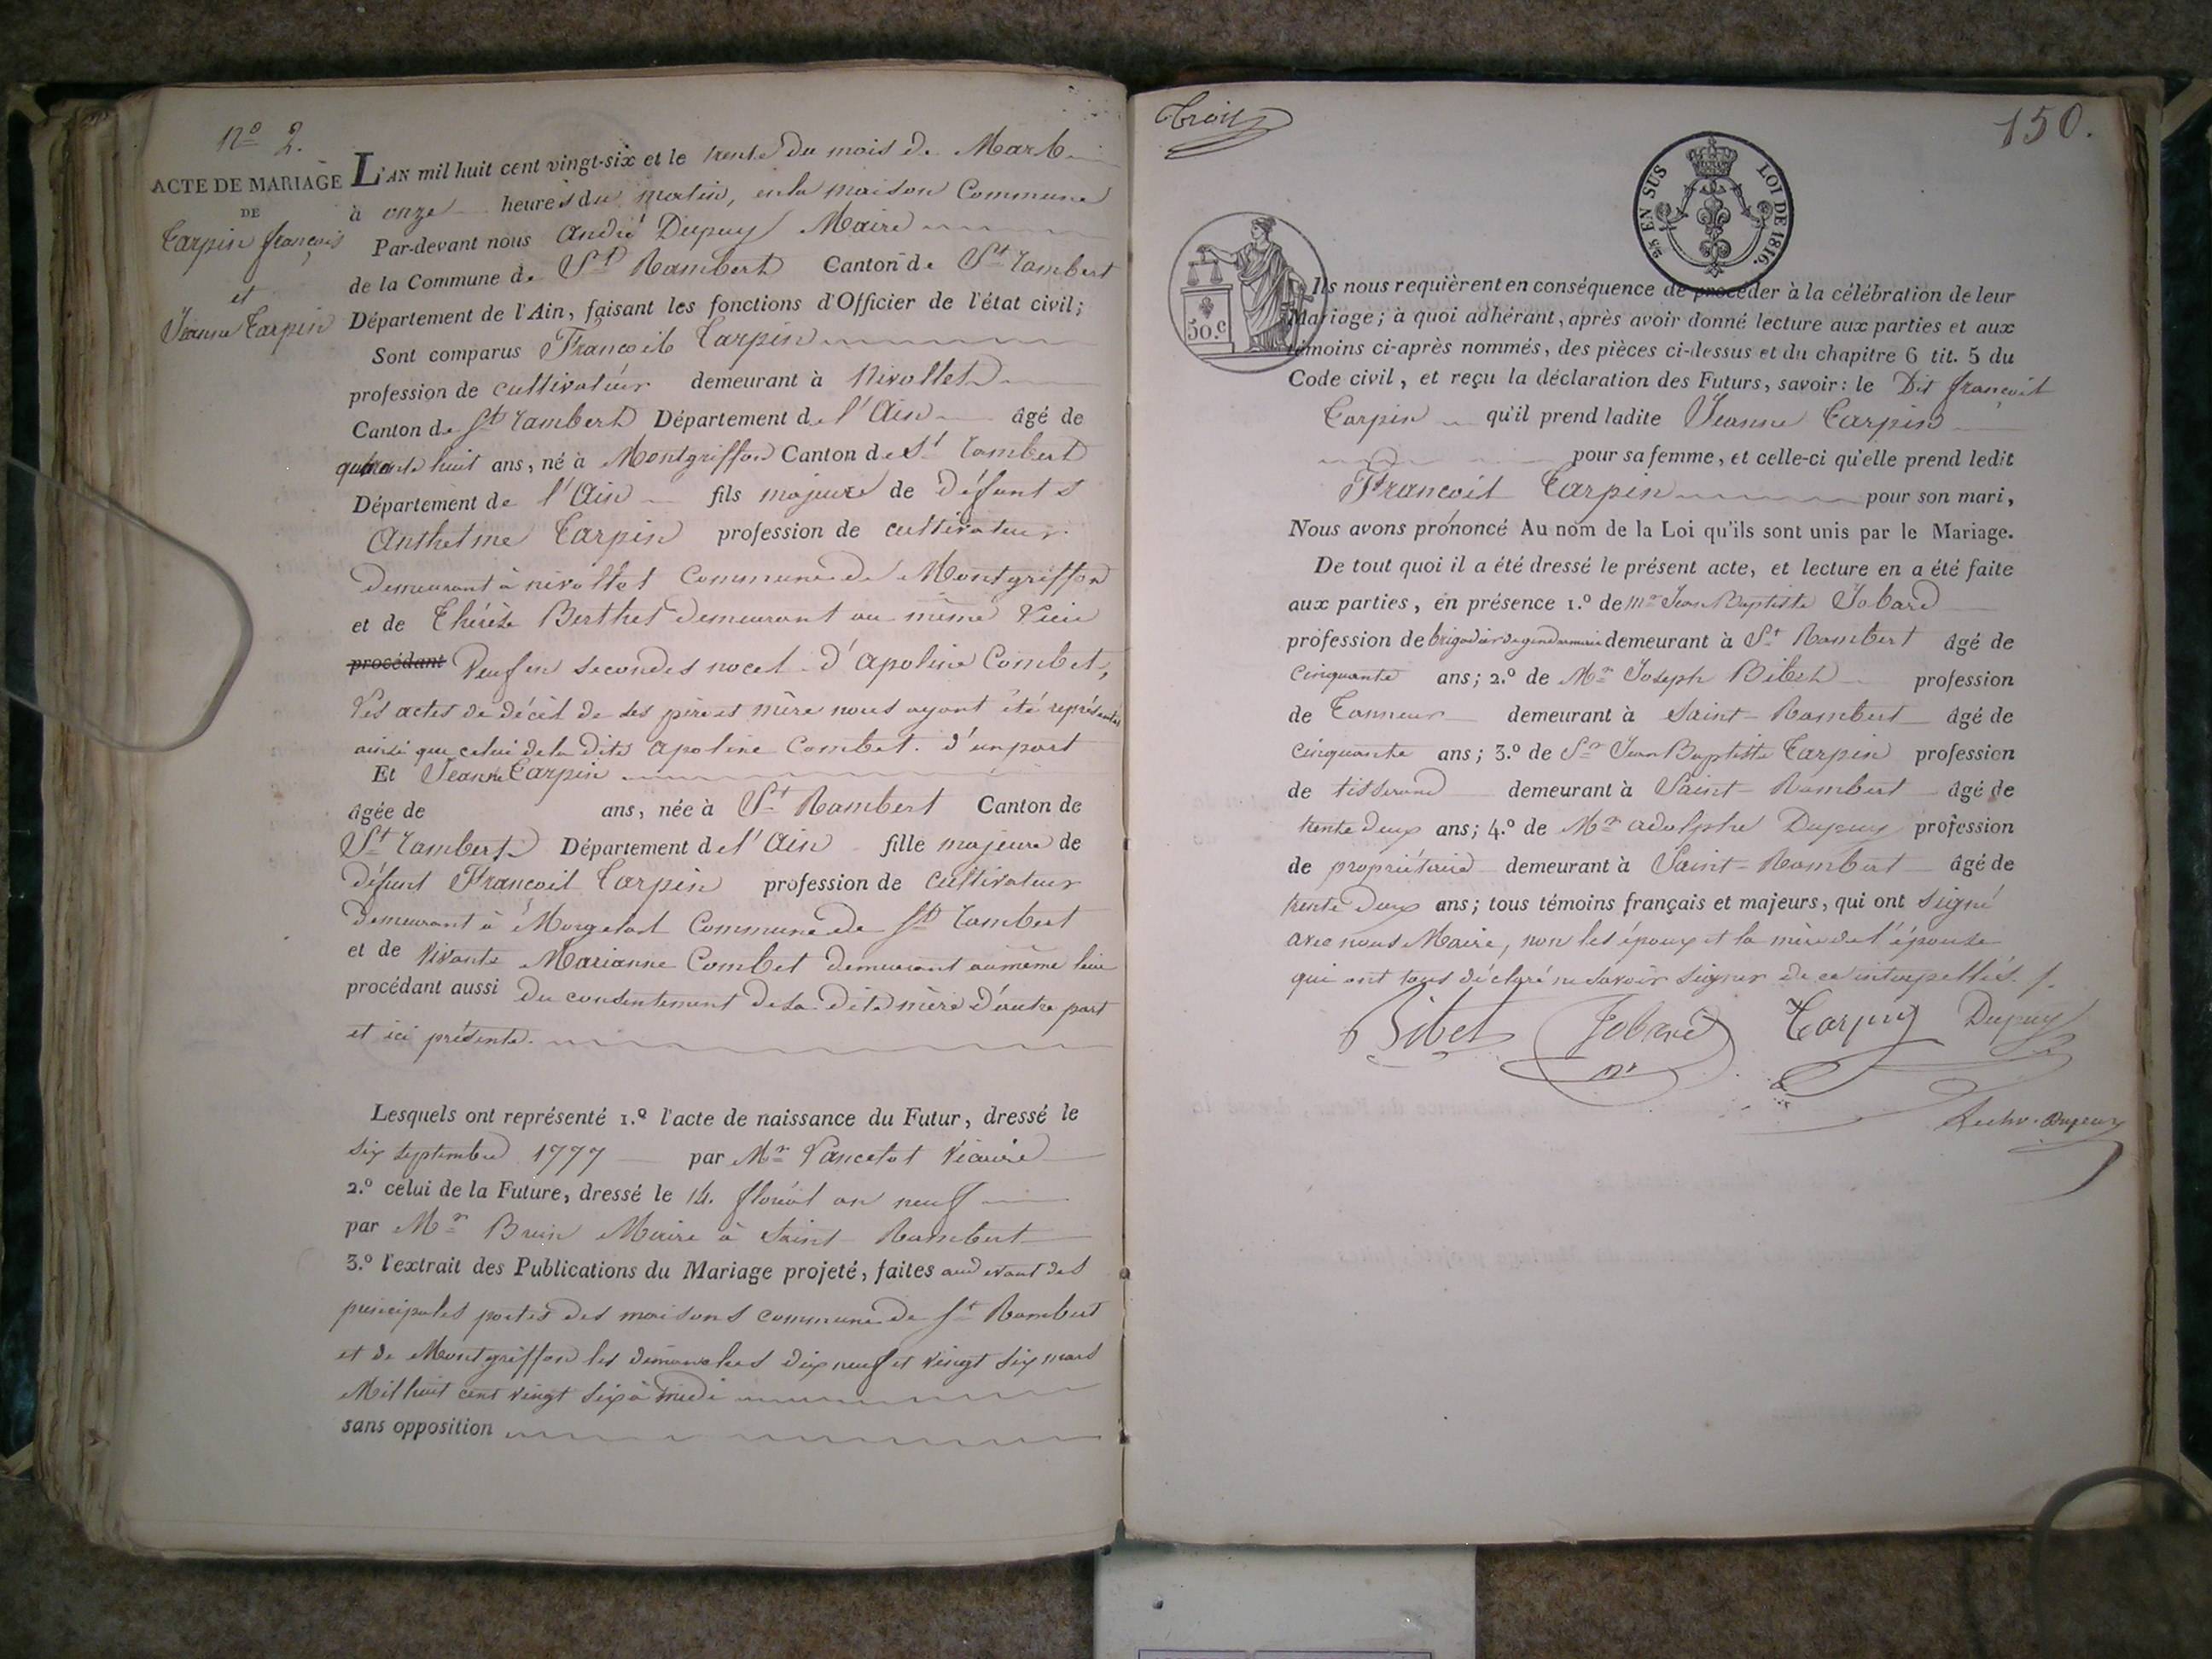 Nº 2.
ACTE DE MARIAGE
DE
Carpin françois
et
Jeanne Carpin
L'AN mil huit cent vingt-six et le trente du mois de Mars
à onze heures du matin, en la maison Commune
Par-devant nous André Dupuy Maire
de la Commune de St Rambert Canton de St Rambert
Département de l'Ain, faisant les fonctions d'Officier de l'état civil;
Sont comparus François Carpin
profession de cultivateur demeurant à Nivollet
Canton de St Rambert Département de l'Ain âgé de
quarante huit ans, né à Montgriffon Canton de St Rambert
Département de l'Ain fils majeure de défunts
Anthelme Carpin profession de cultivateur
demeurant à nivollet Commune de Montgriffon
et de Thérèse Berthet demeurant au même lieu
procédant Veuf en secondes noces d'Apoline Combet,
les actes de décès de ses père et mère nous ayant été représentés
ainsi que celui de la dite apoline Combet. d'un part
Et Jeanne Carpin
âgée de ans, née à St Rambert Canton de
St Rambert Département de l'Ain fille majeure de
défunt François Carpin profession de cultivateur
demeurant à Morgelas Commune de St Rambert
et de vivante Marianne Combet demeurant au même lieu
procédant aussi du consentement de sa dite mère d'autre part
et ici présente.
Lesquels ont représenté 1.º l'acte de naissance du Futur, dressé le
six septembre 1777 par Mr Lancelot Vicaire
2.º celui de la Future, dressé le 14. floréal an neuf
par Mr Brun Maire à Saint Rambert
3.º l'extrait des Publications du Mariage projeté, faites au devant des
principales portes des maisons commune de St Rambert
et de Montgriffon les dimanches dix neuf et vingt six mars
Mil huit cent vingt six à midi
sans opposition
Trois
150.
25 EN SUS LOI DE 1816.
50.c
Ils nous requièrent en conséquence de procéder à la célébration de leur
Mariage; à quoi adhérant, après avoir donné lecture aux parties et aux
témoins ci-après nommés, des pièces ci-dessus et du chapitre 6 tit. 5 du
Code civil, et reçu la déclaration des Futurs, savoir: le Dit françois
Carpin qu'il prend ladite Jeanne Carpin
pour sa femme, et celle-ci qu'elle prend ledit
François Carpin pour son mari,
Nous avons prononcé Au nom de la Loi qu'ils sont unis par le Mariage.
De tout quoi il a été dressé le présent acte, et lecture en a été faite
aux parties, en présence 1.º de mr Jean Baptiste Jobard
profession de brigadier de gendarmerie demeurant à St Rambert âgé de
cinquante ans; 2.º de Mr Joseph Bibet profession
de Tanneur demeurant à Saint-Rambert âgé de
cinquante ans; 3.º de Sr Jean Baptiste Carpin profession
de tisserand demeurant à Saint-Rambert âgé de
trente deux ans; 4.º de Mr adolphe Dupuy profession
de propriétaire demeurant à Saint-Rambert âgé de
trente deux ans; tous témoins français et majeurs, qui ont signé
avec nous Maire, non les époux et la mère de l'épouse
qui ont tous déclaré ne savoir signer de ce interpellés.
Bibet Jobard Carpin Dupuy
Dupuy